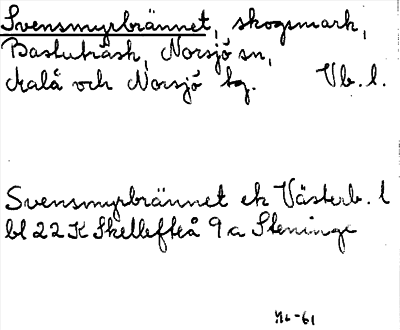 Svensmyrbrännet, skogsmark,
Bastuträsk, Norsjö sn,
Malå och Norsjö tg. Vb. l.
Svensmyrbrännet ek Västerb. l
bl 22 K Skellefteå 9 a Steninge